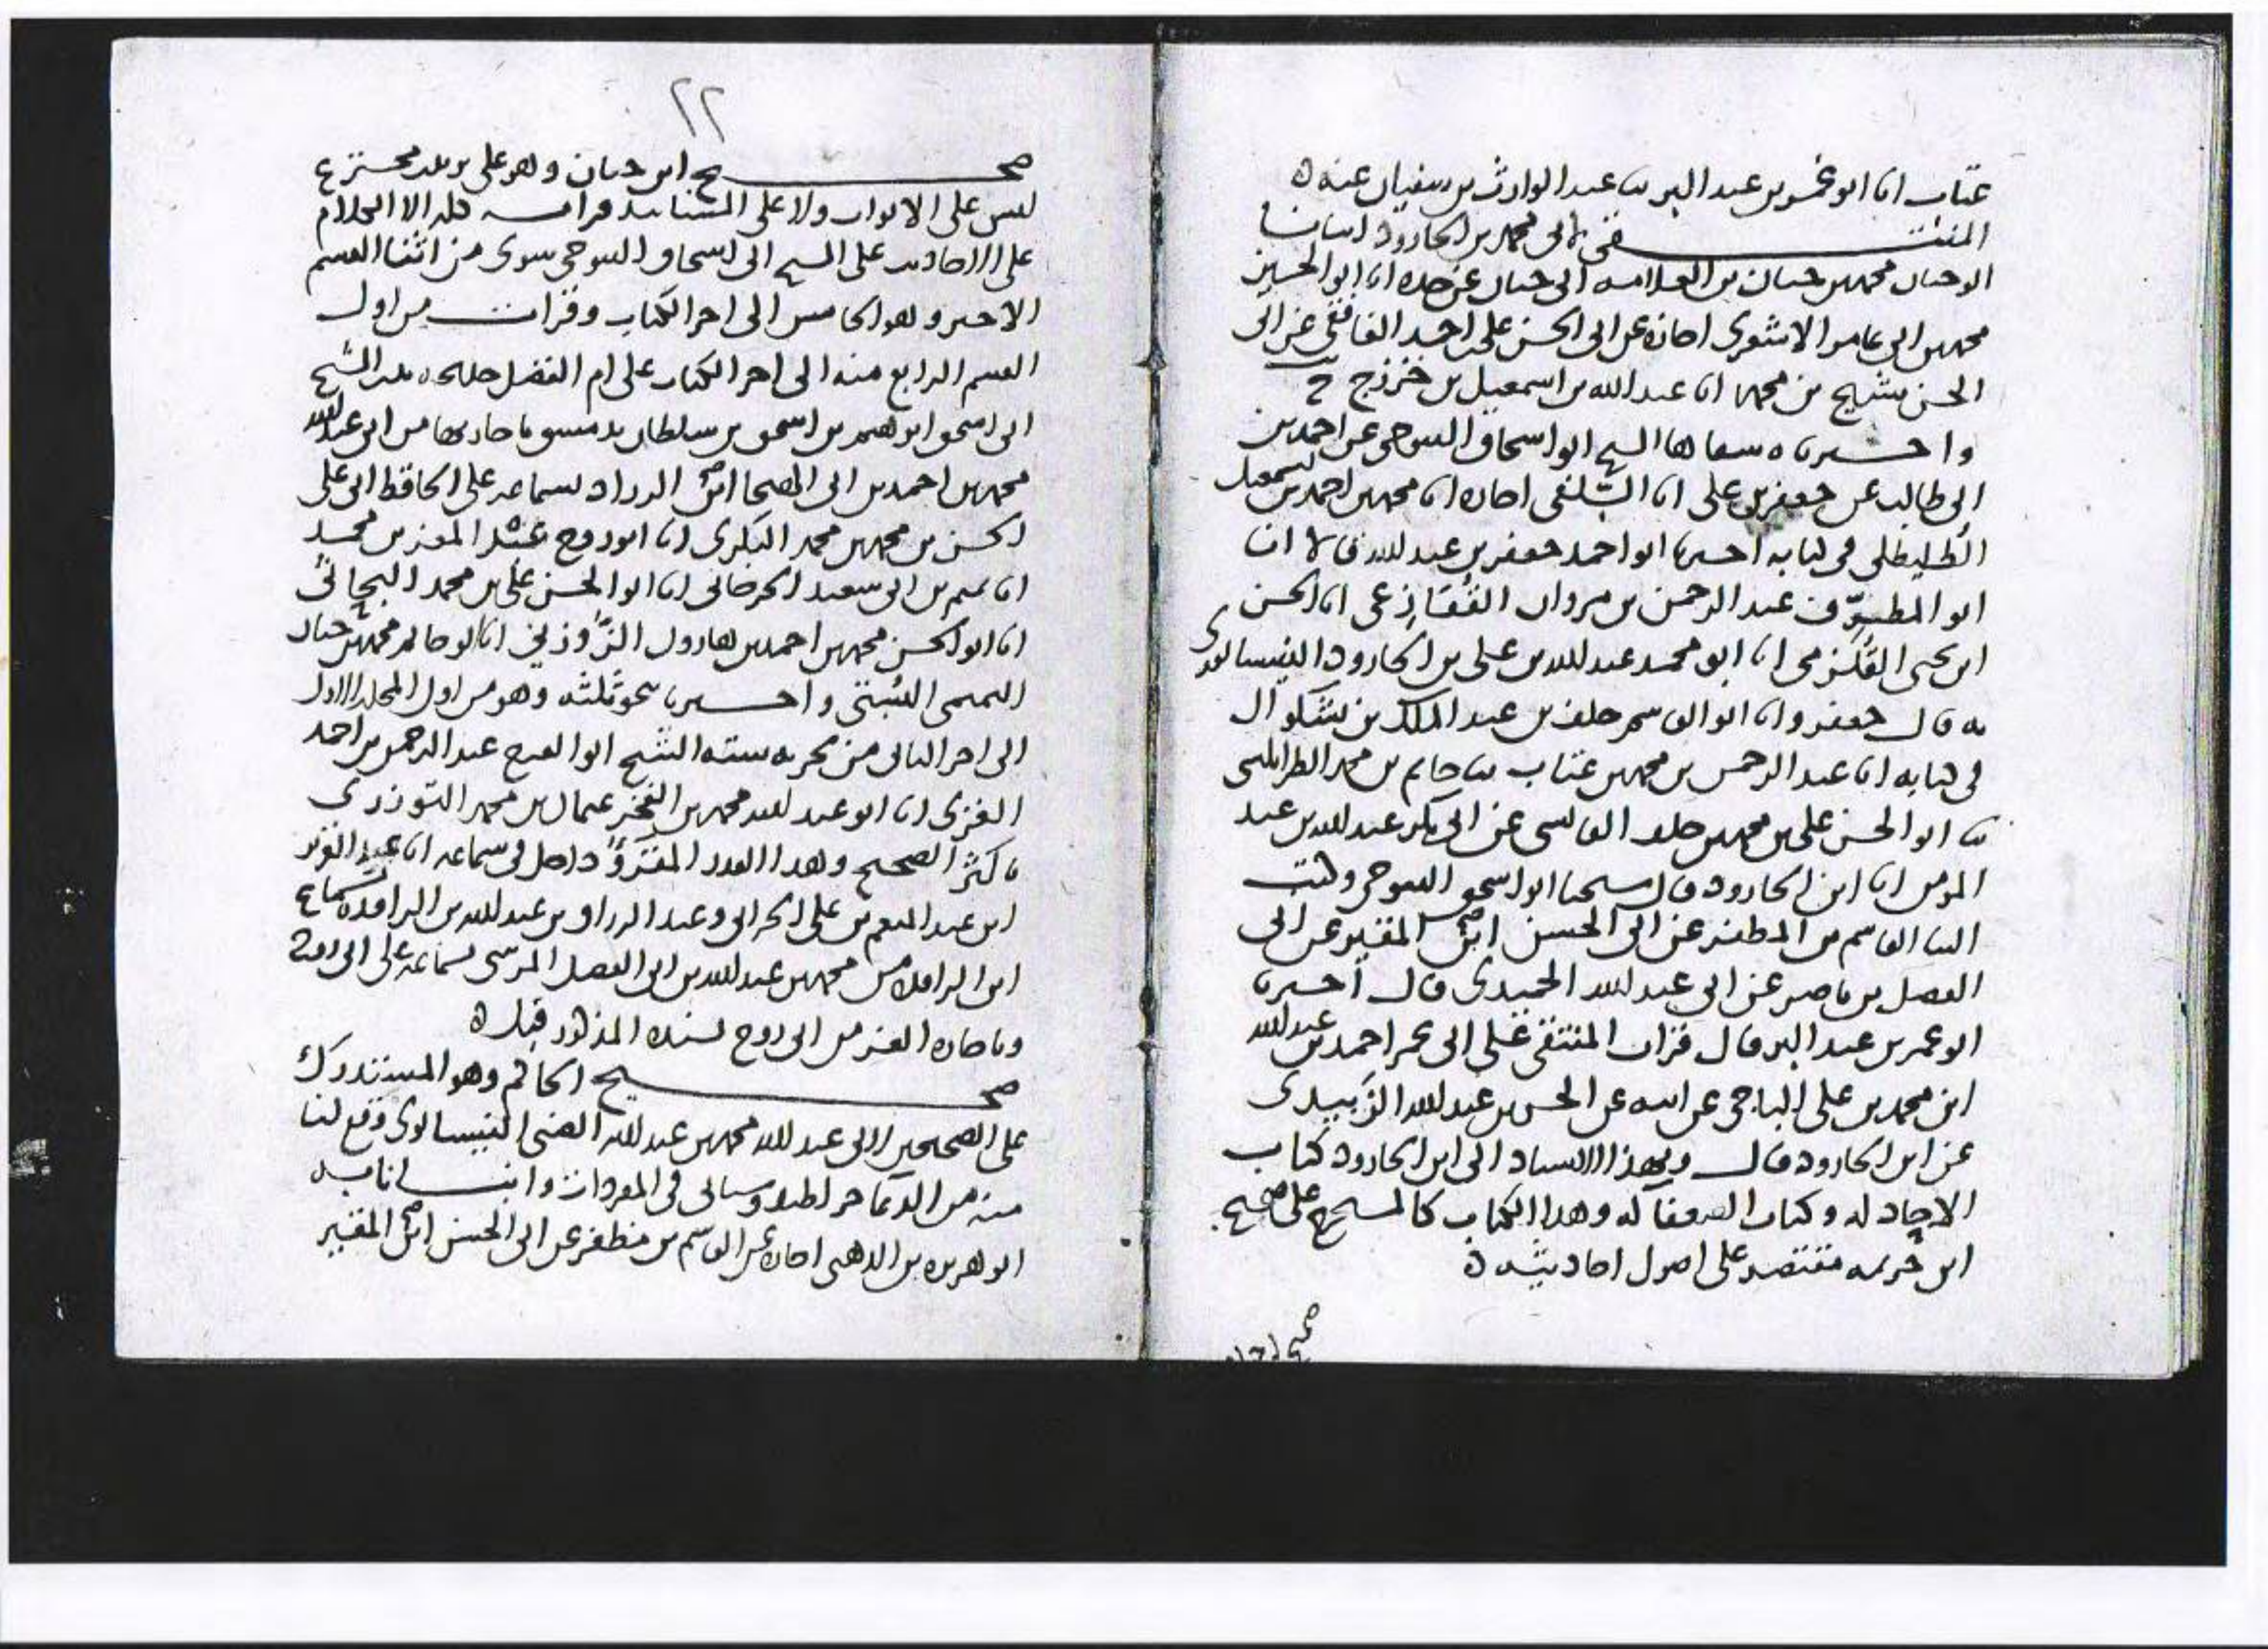 عتاب انا ابو عمر بن عبد البر ثنا عبد الوارث بن سفيان عنه ه
المنتقى لابي محمد بن الجارود انبانا
ابو حيان محمد بن حيان بن العلامه ابي حيان عن جده انا ابو الحسين
محمد بن ابي عامر الاشعري اجازة عن ابي الحسن علي بن احمد الغافقي عن ابي
الحسن شريح بن محمد انا عبد الله بن اسمعيل بن خزرج ح
واخبرنا ه سماها الشيخ ابو اسحاق التنوخي عن احمد بن
ابي طالب عن جعفر بن علي انا السلفي اجازه انا محمد بن احمد بن اسمعيل
الطليطلي في كتابه اخبرنا ابو احمد جعفر بن عبد الله قالا انا
ابو المطرف عبد الرحمن بن مروان القنازعي انا الحسن
ابن يحيى القلزمي انا ابو محمد عبد الله بن علي بن الجارود النيسابوري
به قال جعفر وانا ابو القاسم خلف بن عبد الملك بن بشكوال
في كتابه انا عبد الرحمن بن محمد بن عتاب ثنا حاتم بن محمد الطرابلسي
ثنا ابو الحسن علي بن محمد بن خلف القابسي عن ابي بكر عبد الله بن عبد
المومن انا ابن الجارود قال شيخنا ابو اسحق التنوخي وكتب
الينا القاسم بن المظفر عن ابي الحسن ابن المقير عن ابي
الفضل بن ناصر عن ابي عبد الله الحميدي قال اخبرنا
ابو عمر بن عبد البر قال قرات المنتقى على ابي عمر احمد بن عبد الله
ابن محمد بن علي الباجي عن ابيه عن الحسن بن عبد الله الزبيدي
عن ابن الجارود قال وبهذا الاسناد الى ابن الجارود كتاب
الاحاد له وكتاب الضعفا له وهذا الكتاب كالمستخرج على صحيح
ابن خزيمه مقتصر على اصول احاديثه ه
صحيح ابن حبان
٢٢
صحيح ابن حبان وهو على ترتيب مخترع
ليس على الابواب ولا على المسانيد قرات جله الا الكلام
على الاحاديث على الشيخ ابي اسحاق التنوخي سوى من اثنا القسم
الاخير وهو الخامس الى اخر الكتاب وقرات من اول
القسم الرابع منه الى اخر الكتاب على ام الفضل خديجه بنت الشيخ
ابي اسحق ابرهيم بن اسحق بن سلطان بدمشق باجازتها من ابي عبد الله
محمد بن احمد بن ابي الهيجا ابن الزراد بسماعه على الحافظ ابي علي
الحسن بن محمد بن محمد البكري انا ابو روح عبد المعز بن محمد
انا تميم بن ابي سعيد الجرجاني انا ابو الحسن علي بن محمد البحاثي
انا ابو الحسن محمد بن احمد بن هارون الزوزني انا ابو حاتم محمد بن حبان
التميمي البستي واخبرنا بنحو ثلثه وهو من اول المجلد الاول
الى اخر الثاني من تجزيه سته الشيخ ابو الفرج عبد الرحمن بن احمد
الغزي انا ابو عبد الله محمد بن الفخر عثمان بن محمد التوزري
باكثر الصحيح وهذا القدر المقروء داخل في سماعه انا عبد العزيز
ابن عبد المنعم بن علي الحراني وعبد الرزاق بن عبد الله بن الرافده سماع
ابن الرافده من محمد بن عبد الله بن ابي الفضل المرسي بسماعه على ابي روح
وباجازه العز من ابي روح بسنده المذكور قبل ه
صحيح الحاكم وهو المستدرك
على الصحيحين لابي عبد الله محمد بن عبد الله الضبي النيسابوري وقع لنا
منه من الدعا وسياتي في المفردات وانبانا به
ابو هريره بن الذهبي اجازة عن القاسم بن مظفر عن ابي الحسن ابن المقير